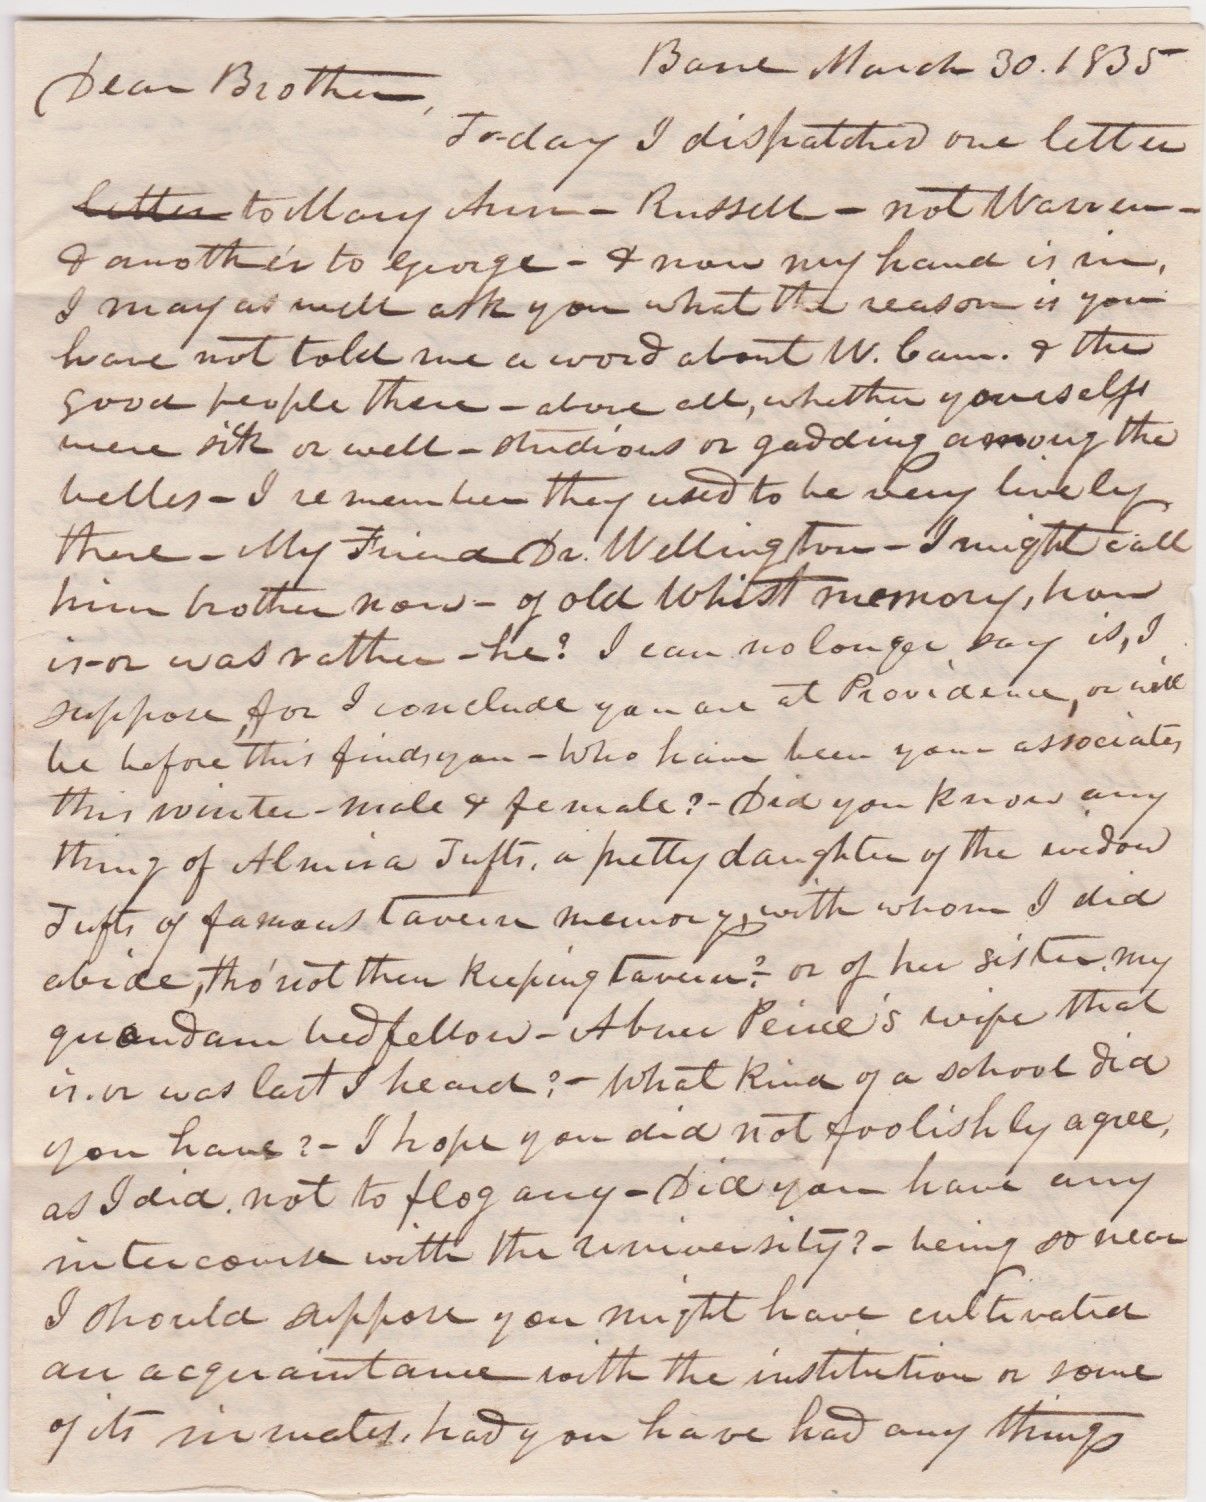 Barre March 30. 1835
Dear Brother,
To-day I dispatched one letter
letter to Mary Ann - Russell - not Warren -
& another to George - & now my hand is in,
I may as well ask you what the reason is you
have not told me a word about W. Cam. & the
good people there - above all, whether yourself
were sik or well - studious or gadding among the
belles - I remember they used to be very lively
there - My Friend Dr. Wellington - I might call
him brother now - of old Whist memory, how
is - or was rather - he? I can no longer say is, I
suppose, for I conclude you are at Providence, or will
be before this finds you - Who have been your associates
this winter - male & female? - Did you know any
thing of Almira Tufts, a pretty daughter of the widow
Tufts of famous tavern memory, with whom I did
abide, tho' not then keeping tavern? - or of her sister, my
quondam bedfellow - Abner Peirce's wife that
is. or was last I heard? - What kind of a school did
you have? - I hope you did not foolishly agree,
as I did, not to flog any - Did you have any
intercourse with the University? - being so near
I should suppose you might have cultivated
an acquaintance with the institution or some
of its inmates, had you have had any things